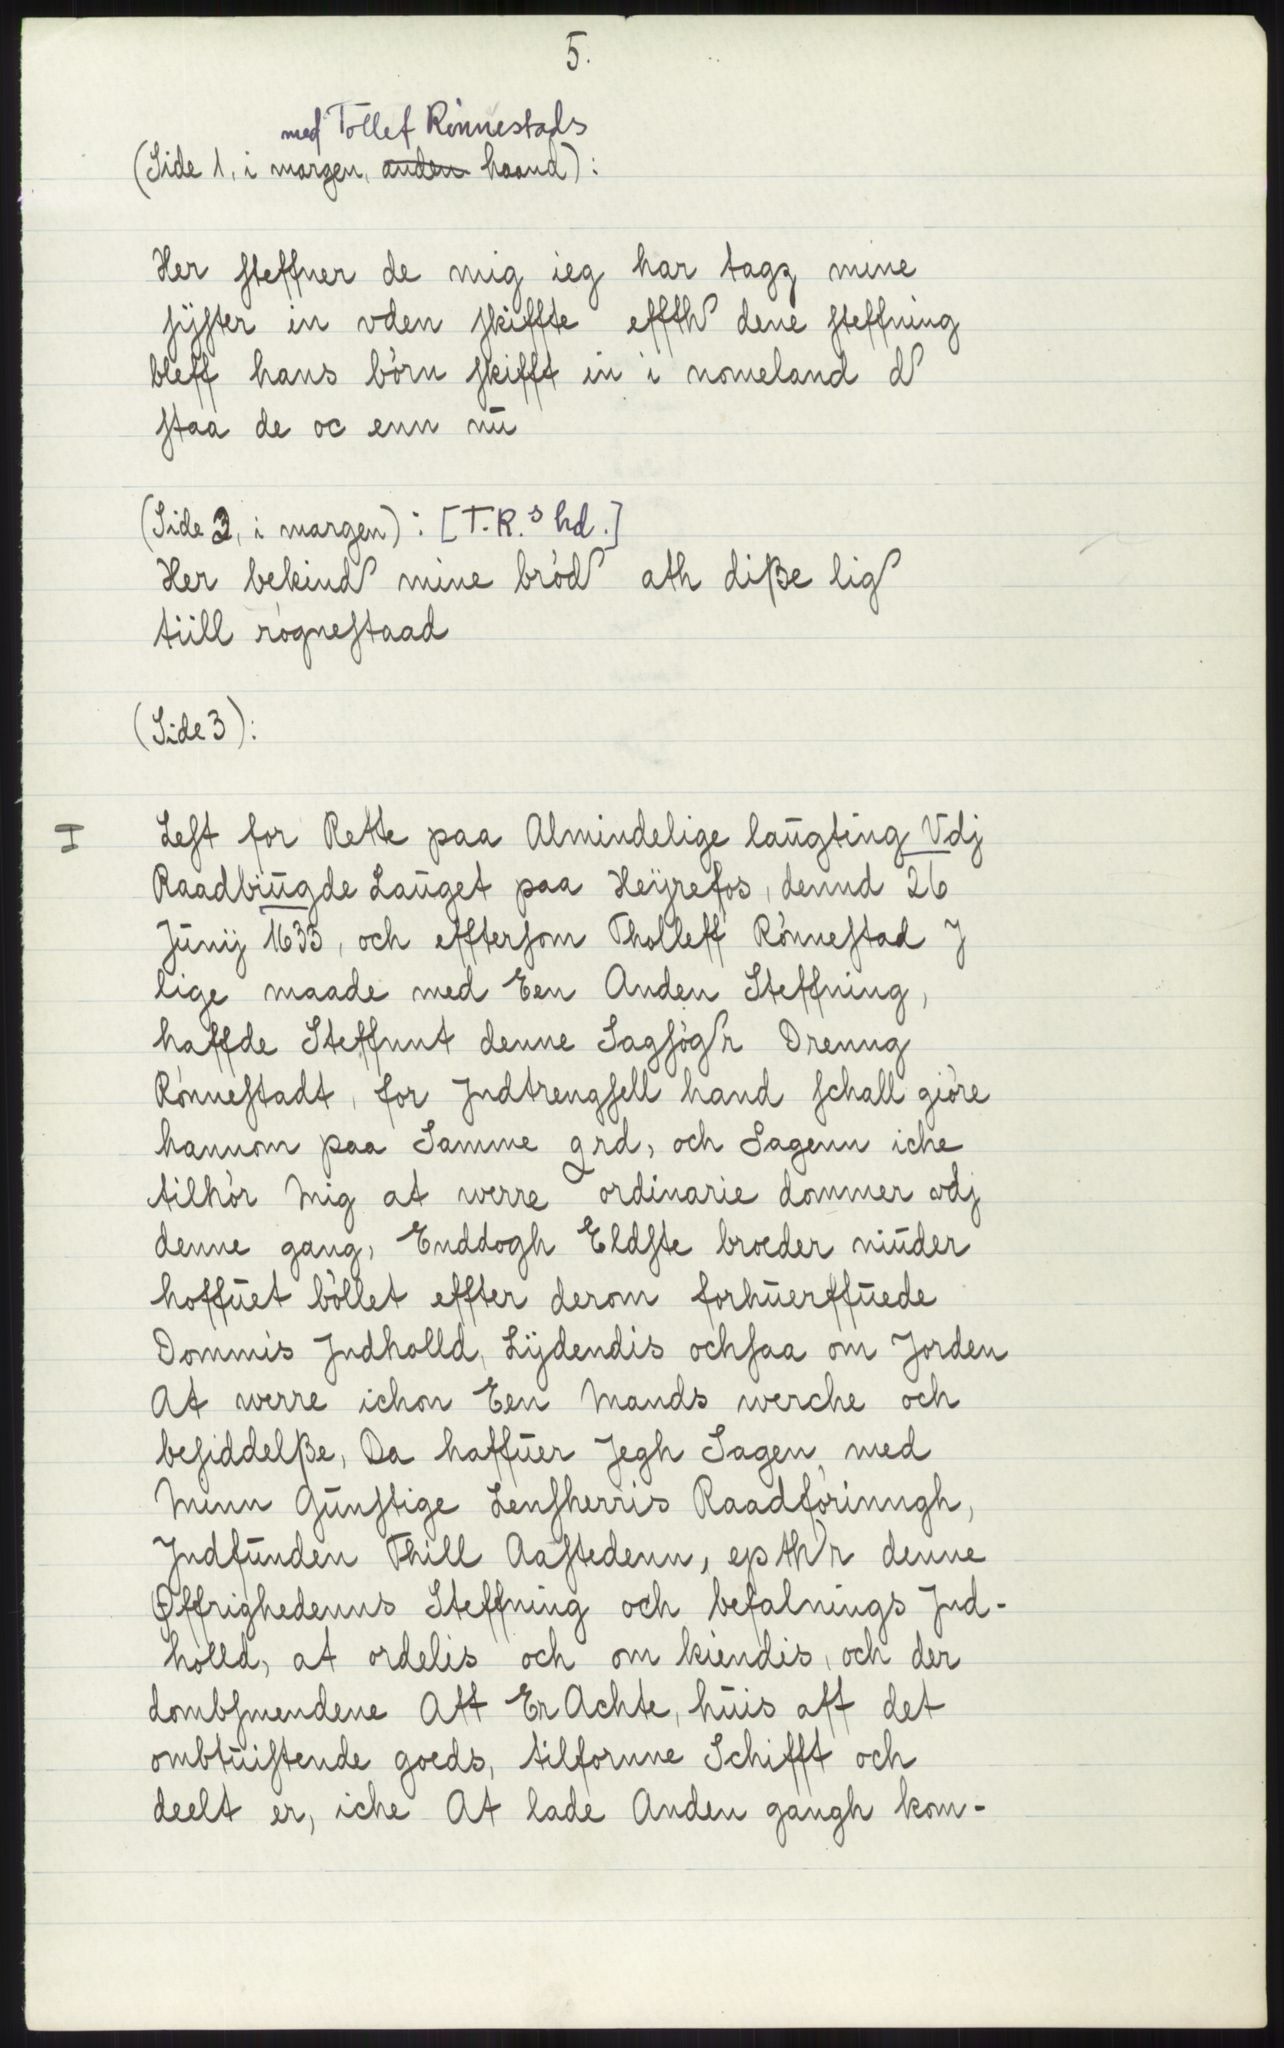 5.
med Tollef Rönnestads
(Side 1, i margen, anden haand):
Her steffner de mig ieg har tagz mine
syster in vden skiffte effth dene steffning
bleff hans börn skifft in i nomeland d
staa de oc enn nu
(Side 2, i margen): [T.R.s hd.]
Her bekind mine bröd ath diße lig
tiill rögnestaad
(Side 3):
I
Lest for Rette paa Almindelige laugting Vdj
Raadbiugde Lauget paa Heyrefos, dennd 26
Junij 1635, och efftersom Tholleff Rönnestad J
lige maade med Een Anden Steffning,
haffde Steffnnt denne Sagsögr Drenng
Rönnestadt, for Jndtrengsell hand schall giöre
hannom paa Samme grd, och Sagenn iche
tilhör Mig at werre ordinarie dommer vdj
denne gang, Enddogh Eldste broeder niuder
hoffuet böllet effter derom forhuerffuede
Dommis Jndholld, Lydendis ochsaa om Jorden
At werre ichon Een Mands werche och
besiddelße, Da haffuer Jegh Sagen med
Minn Gunstige Lensherris Raadförinngh,
Jndfunden Thill Aastedenn, epthr denne
Øffrighedenns Steffning och befalnings Jnd-
holld, at ordelis och om kiendis, och der
dombsmendene Att Er Achte, huis aff det
ombtuistende goeds, tilfornne Schifft och
deelt er, iche At lade Anden gangh kom-